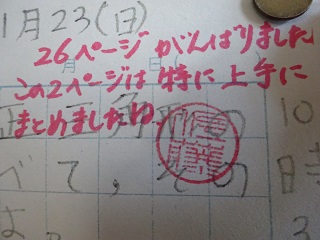 1月23(日)
26ページ がんばりました
この2ページは 特に 上手に
まとめましたね
の 10
べて, その 時
よ。 3